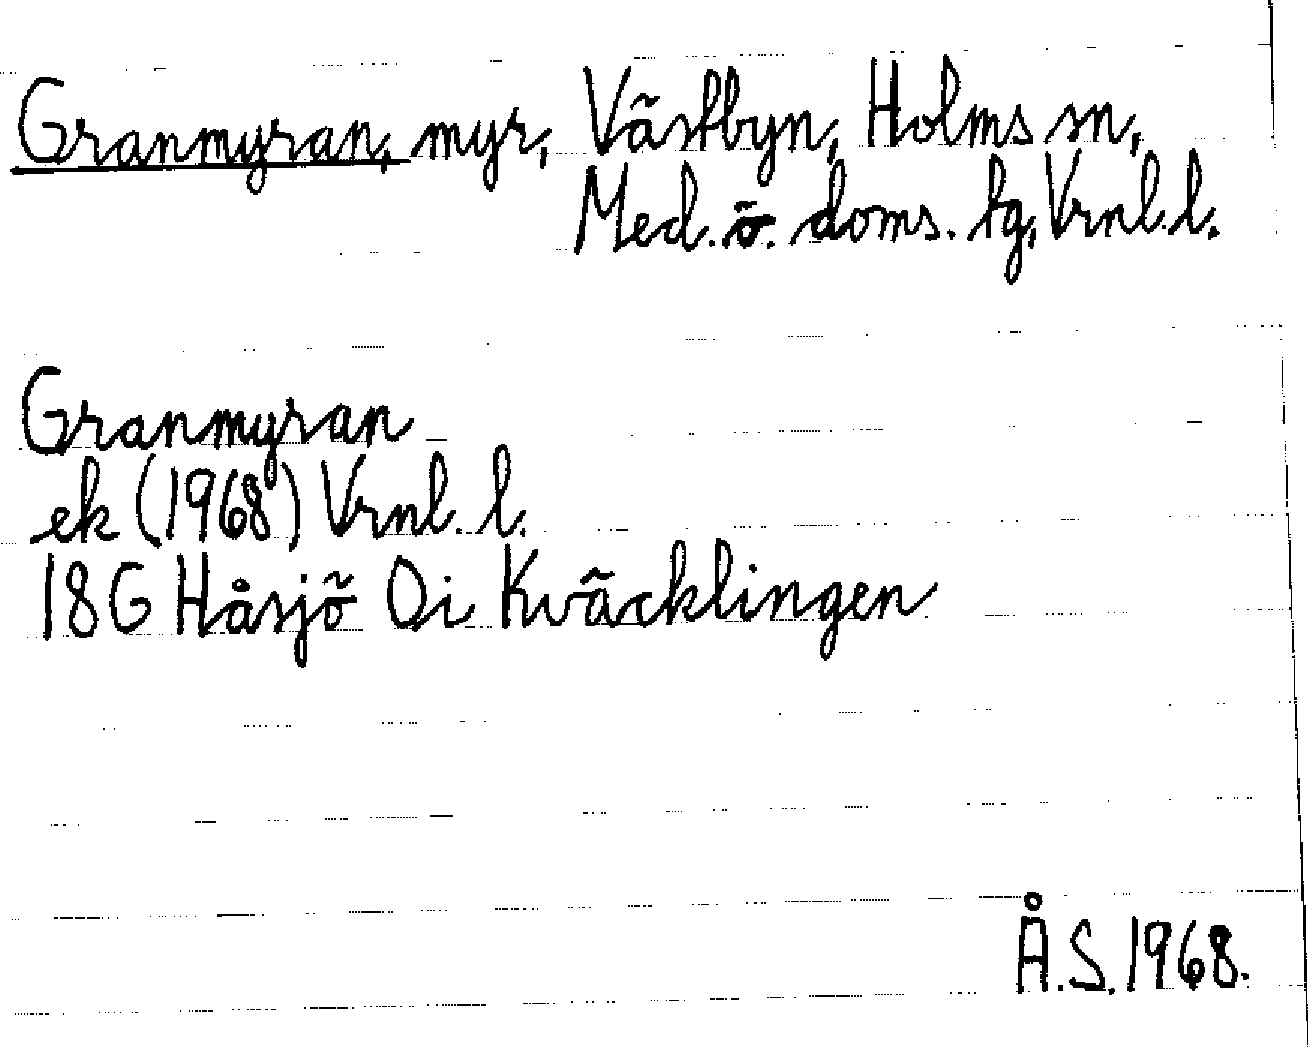 Granmyran, myr, Västbyn, Holms sn,
Med. ö. doms. tg, Vrnl. l.
Granmyran
ek (1968) Vrnl. l.
18G Håsjö Di Kväcklingen
Å.S. 1968.